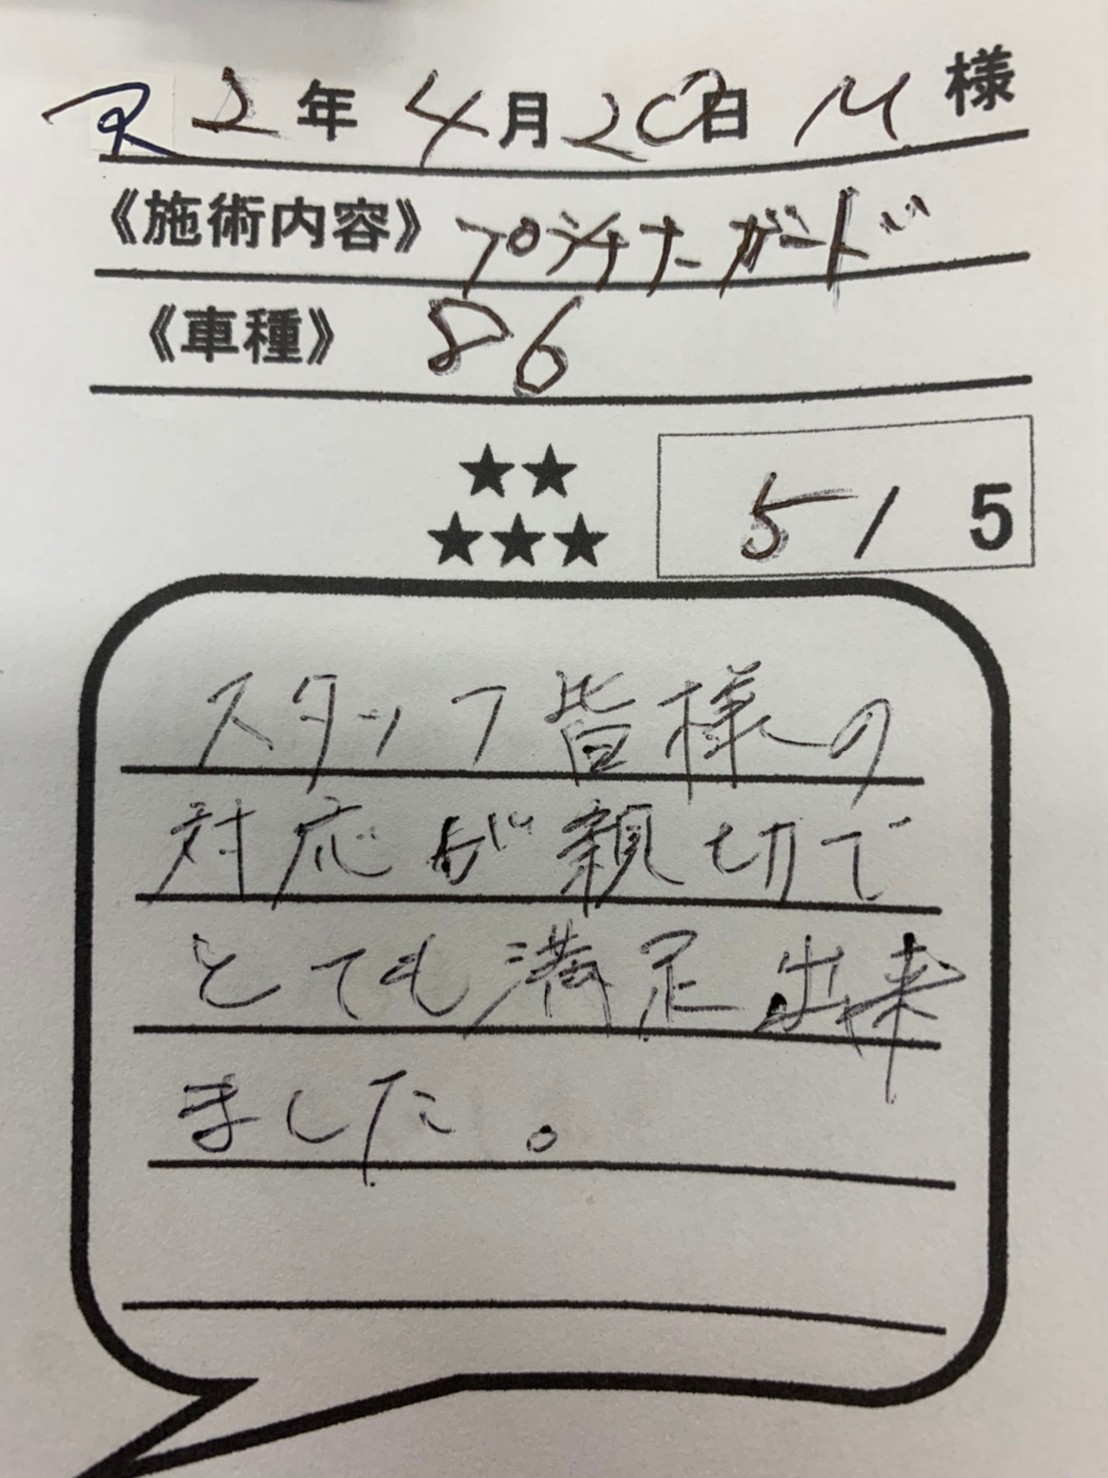 R2年4月20日 M様
《施術内容》プラチナーガード
《車種》86
★★
★★★
5/5
スタッフ皆様の
対応が親切で
とても満足出来
ました。